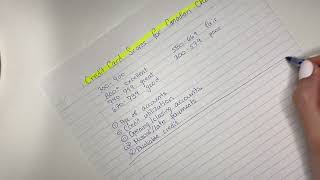 Credit Card Scores for Canadian
300 - 900
760+ excellent
good
670 - 739 good
580 - 669 fair
300 - 579 poor
① Age of accounts
② Credit utilization
③ Opening/closing accounts
④ Missed/late payments
⑤ Available credit